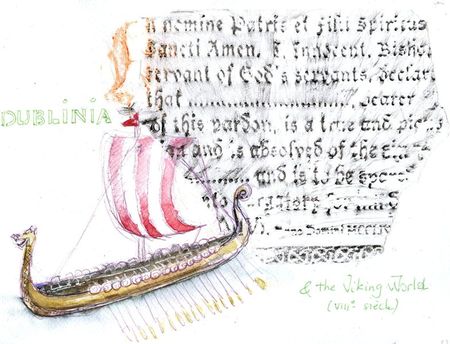 In nomine Patris et Filii Spiritus
Sancti Amen. I, Innocent, Bisho
servant of God's servants, declare
that ........................, bearer
DUBLINIA
of this pardon, is a true and
and is absolved of the
and is to be
Anno Domini
& the Viking World
(VIIIe siècle)